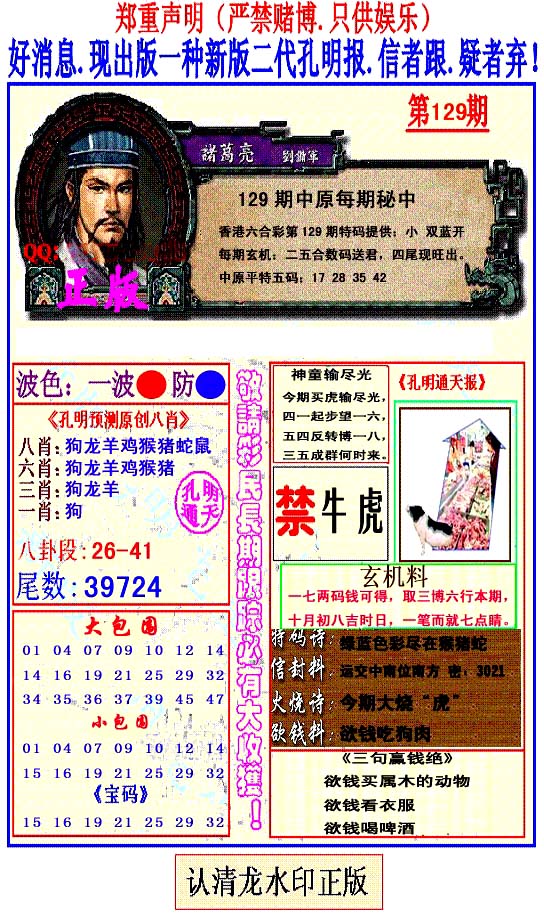 郑重声明（严禁赌博.只供娱乐）
好消息.现出版一种新版二代孔明报.信者跟.疑者弃！
第129期
諸葛亮 劉備軍
129 期中原每期秘中
香港六合彩第 129 期特码提供：小 双蓝开
每期玄机：二五合数码送君，四尾现旺出。
中原平特五码：17 28 35 42
QQ:
正版
波色：一波 防
《孔明预测原创八肖》
八肖:狗龙羊鸡猴猪蛇鼠
六肖:狗龙羊鸡猴猪
三肖:狗龙羊
一肖:狗
孔明
通天
八卦段:26-41
尾数:39724
大包围
01 04 07 09 10 12 14
14 16 19 21 25 29 32
34 35 36 37 39 45 47
小包围
01 04 07 09 10 12 14
15 16 19 21 25 29 32
《宝码》
15 16 19 21 25 29 32
敬請彩民長期跟踪必有大收獲！
神童输尽光
今期买虎输尽光，
四一起步望一六，
五四反转博一八，
三五成群何时来。
《孔明通天报》
禁牛虎
玄机料
一七两码钱可得，取三博六行本期，
十月初八吉时日，一笔而就七点睛。
特码诗：绿蓝色彩尽在猴猪蛇
信封料：运交中南位南方 密：3021
火烧诗：今期大烧“虎”
欲钱料：欲钱吃狗肉
《三句赢钱绝》
欲钱买属木的动物
欲钱看衣服
欲钱喝啤酒
认清龙水印正版